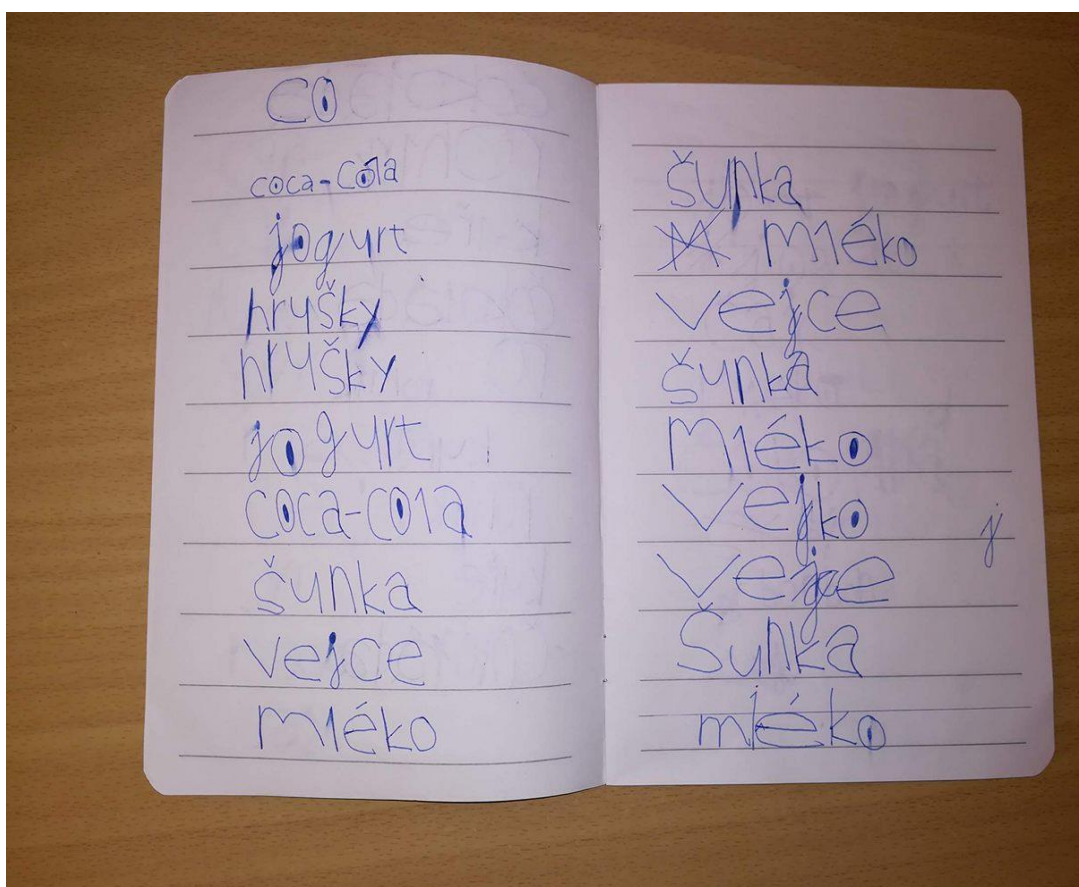 co
coca-cola
jogurt
hrušky
hrušky
jogurt
coca-cola
šunka
vejce
mléko
šunka
mléko
vejce
šunka
mléko
vejko
j
vejce
šunka
mléko